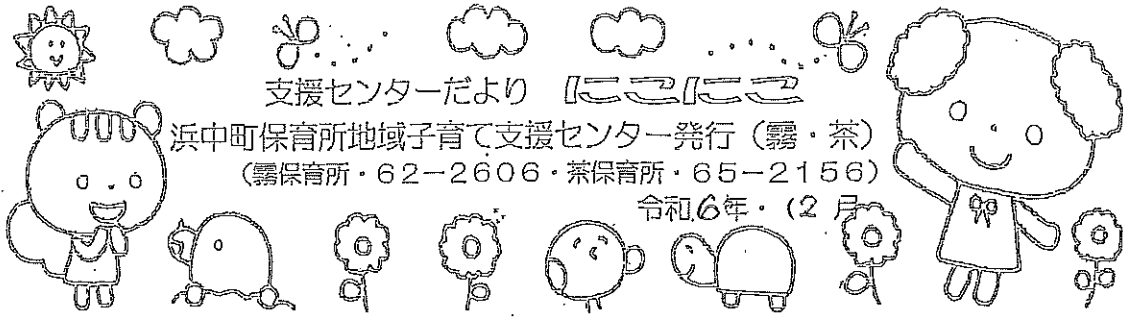 支援センターだより にこにこ
浜中町保育所地域子育て支援センター発行（霧・茶）
（霧保育所・62－2606・茶保育所・65－2156）
令和6年・12月